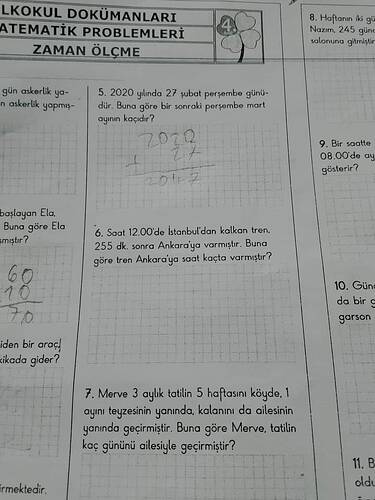 LKOKUL DOKÜMANLARI
ATEMATİK PROBLEMLERİ
ZAMAN ÖLÇME
gün askerlik ya-
n askerlik yapmış-
başlayan Ela,
Buna göre Ela
mıştır?
60
10
70
iden bir araç,
kikada gider?
irmektedir.
5. 2020 yılında 27 şubat perşembe günü-
dür. Buna göre bir sonraki perşembe mart
ayının kaçıdır?
2020
+ 27
2047
6. Saat 12.00'de İstanbul'dan kalkan tren,
255 dk. sonra Ankara'ya varmıştır. Buna
göre tren Ankara'ya saat kaçta varmıştır?
7. Merve 3 aylık tatilin 5 haftasını köyde, 1
ayını teyzesinin yanında, kalanını da ailesinin
yanında geçirmiştir. Buna göre Merve, tatilin
kaç gününü ailesiyle geçirmiştir?
8. Haftanın iki gü
Nazım, 245 günd
salonuna gitmiştir
9. Bir saatte
08.00'de ay
gösterir?
10. Günd
da bir g
garson
11. B
oldu